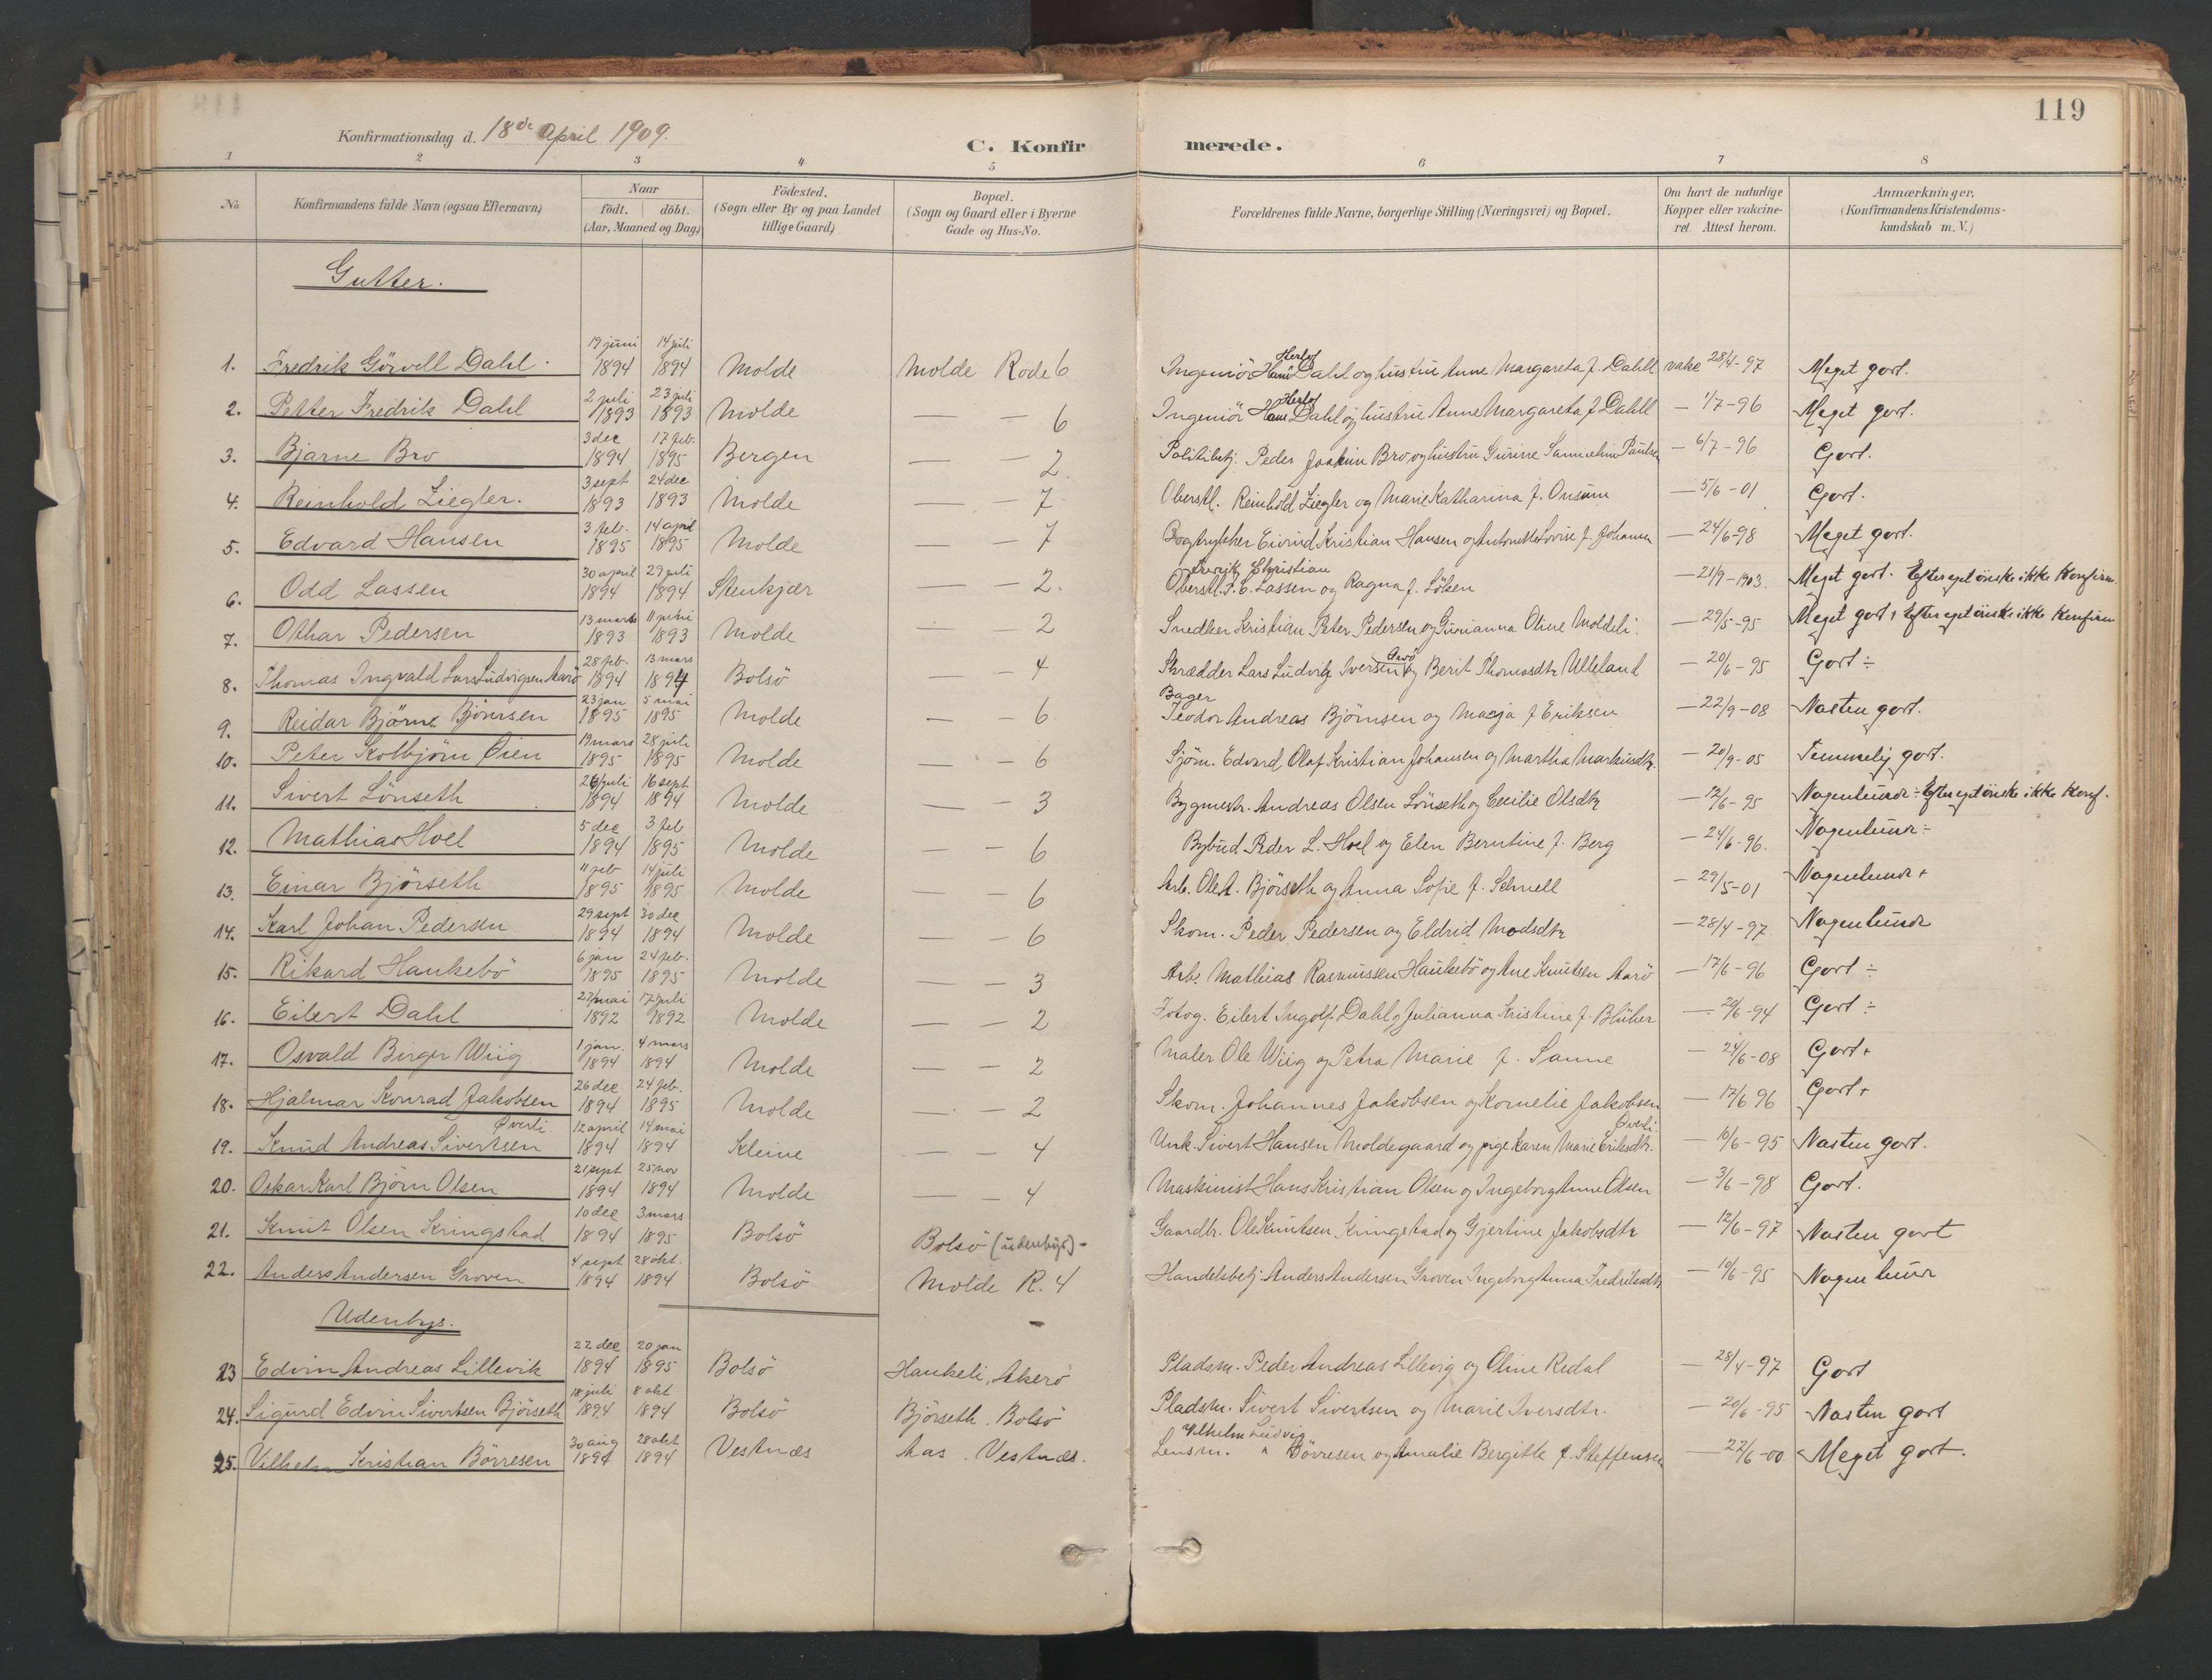 119
Konfirmationsdag d. 18de April 1909.
C. Konfirmerede.
1 2 3 4 5 6 7 8
No
Konfirmandens fulde Navn (ogsaa Efternavn)
Naar
födt. döbt.
(Aar, Maaned og Dag)
Födested.
(Sogn eller By og paa Landet
tillige Gaard)
Bopæl.
(Sogn og Gaard eller i Byerne
Gade og Hus-No.
Forældrenes fulde Navne, borgerlige Stilling (Næringsvei) og Bopæl.
Om havt de naturlige
Kopper eller vakcine-
ret. Attest herom.
Anmærkninger.
(Konfirmandens Kristendoms-
kundskab m. V.)
Gutter.
19 juni 14 juli
1. Fredrik Görvell Dahl. 1894 1894 Molde Molde Rode 6 Ingeniör Hans Herlof Dahl og hustru Anne Margareta f. Dahll vakc 28/4-97 Meget godt.
2 juli 23 juli
2. Petter Fredrik Dahl 1893 1893 Molde — — 6 Ingeniör Hans Herlof Dahl og hustru Anne Margareta f Dahll — 1/7-96 Meget godt.
3 dec 17 feb.
3. Bjarne Bro 1894 1895 Bergen — — 2. Politibetj. Peder Joakim Bro og hustru Gurine Paulsen — 6/7-96 Godt.
3 sept 24 dec
4. Reinhold Ziegler. 1893 1893 Molde — — 7. Oberstl. Reinhold Ziegler og Marie Katharina f. Onsum — 5/6-01 Godt.
3 feb. 14 april
5. Edvard Hansen 1895 1895 Molde — — 7 Bogtrykker Eivind Kristian Hansen og Antonette Lovise f. Johansen — 24/6-98 Meget godt.
30 april 29 juli
6. Odd Lassen 1894 1894 Stenkjær — — 2. Oberstl. F. C. Christian Lassen og Ragna f. Löken — 21/9-1903. Meget godt. Efter eget önske ikke Konfirm.
13 marts 11 juni
7. Othar Pedersen 1893 1893 Molde — — 2 Snedker Kristian Peter Pedersen og Gurianna Oline Moldeli. — 29/5-95 Meget godt + Efter eget önske ikke Konfirm
28 feb. 13 mars
8. Thomas Ingvald Lars Ludvigsen Aarö 1894 1894 Bolsö — — 4 Skrædder Lars Ludvig Iversen Aarö og Berit Thomasdtr Ulleland — 20/6-95 Godt ÷
23 jan 5 mai
9. Reidar Björne Björnsen 1895 1895 Molde — — 6. Bager Teodor Andreas Björnsen og Marja f Eriksen — 22/9-08 Næsten godt.
19 mars 28 juli
10. Peter Kolbjörn Öien 1895 1895 Molde — — 6 Sjöm. Edvard Olaf Kristian Johansen og Martha Markusdtr. — 20/9-05 Temmelig godt.
26 juli 16 sept
11. Sivert Lönseth 1894 1894 Molde — — 3 Bygmestr. Andreas Olsen Lönseth og Cecilie Olsdtr — 12/6-95 Nogenlunde ÷ Efter eget önske ikke Konf.
5 dec 3 feb
12. Mathias Hoel 1894 1895 Molde — — 6 Bybud Peder L. Hoel og Elen Berntine f. Berg — 24/6-96. Nogenlunde ÷
11 feb 14 juli
13. Einar Björseth 1895 1895 Molde — — 6 Arb. Ole A. Björseth og Anna Sofie f. Schnell — 29/5-01 Nogenlunde +
29 sept 30 dec
14. Karl Johan Pedersen 1894 1894 Molde — — 6 Skom. Peder Pedersen og Eldrid Madsdtr — 28/4-97 Nogenlunde
6 jan 24 feb.
15. Rikard Haukebö 1895 1895 Molde — — 3 Arb. Mathias Rasmussen Haukebö og Ane Knutsen Aarö — 17/6-96 Godt ÷
27 mai 17 juli
16. Eilert Dahl 1892 1892 Molde — — 2 Fotog. Eilert Ingolf Dahl og Julianna Kristine f. Blüher — 20/6-94 Godt ÷
1 jan. 4 mars
17. Osvald Birger Wiig 1894 1894 Molde — — 2 Maler Ole Wiig og Petra Marie f. Sanne — 24/6-08 Godt +
26 dec 24 feb.
18. Hjalmar Konrad Jakobsen 1894 1895 Molde — — 2 Skom. Johannes Jakobsen og Kornelie Jakobsen — 12/6 96 Godt +
Överli. 12 april 14 mai Överli.
19. Knud Andreas Sivertsen 1894 1894 Kleive — — 4 Unk. Sivert Hansen Moldegaard og pige Karen Marie Eriksdtr. — 10/6-95 Næsten godt.
21 sept 25 nov
20. Oskar Karl Björn Olsen 1894 1894 Molde — — 4 Maskinist Hans Kristian Olsen og Ingeborg Anne Olsen — 3/6-98 Godt.
10 dec 3 mars
21. Knut Olsen Kringstad 1894 1895 Bolsö Bolsö (udenbys) - Gaardbr. Ole Knutsen Kringstad og Gjertine Jakobsdtr — 12/6-97 Næsten godt
4 sept 28 okt.
22. Anders Andersen Groven 1894 1894 Bolsö Molde R. 4 Handelsbetj. Anders Andersen Groven Ingeborg Anna Fredriksdtr — 10/6-95 Nogenlund
Udenbys.
22 dec 20 jan
23 Edvin Andreas Lillevik 1894 1895 Bolsö Haukeli, Akerö Pladsm. Peder Andreas Lillevig og Oline Rödal — 28/4-97 Godt
18 juli 8 okt
24. Sigurd Edvin Sivertsen Björseth 1894 1894 Bolsö Björseth. Bolsö Pladsm. Sivert Sivertsen og Marie Iversdtr. — 20/6-95 Næsten godt
30 aug 28 okt Vilhelm Ludvig
25. Vilhelm Kristian Börresen 1894 1894 Vestnæs Aas. Vestnæs. Lensm. " Börresen og Amalie Bergitte f. Steffensen — 22/6-00 Meget godt.